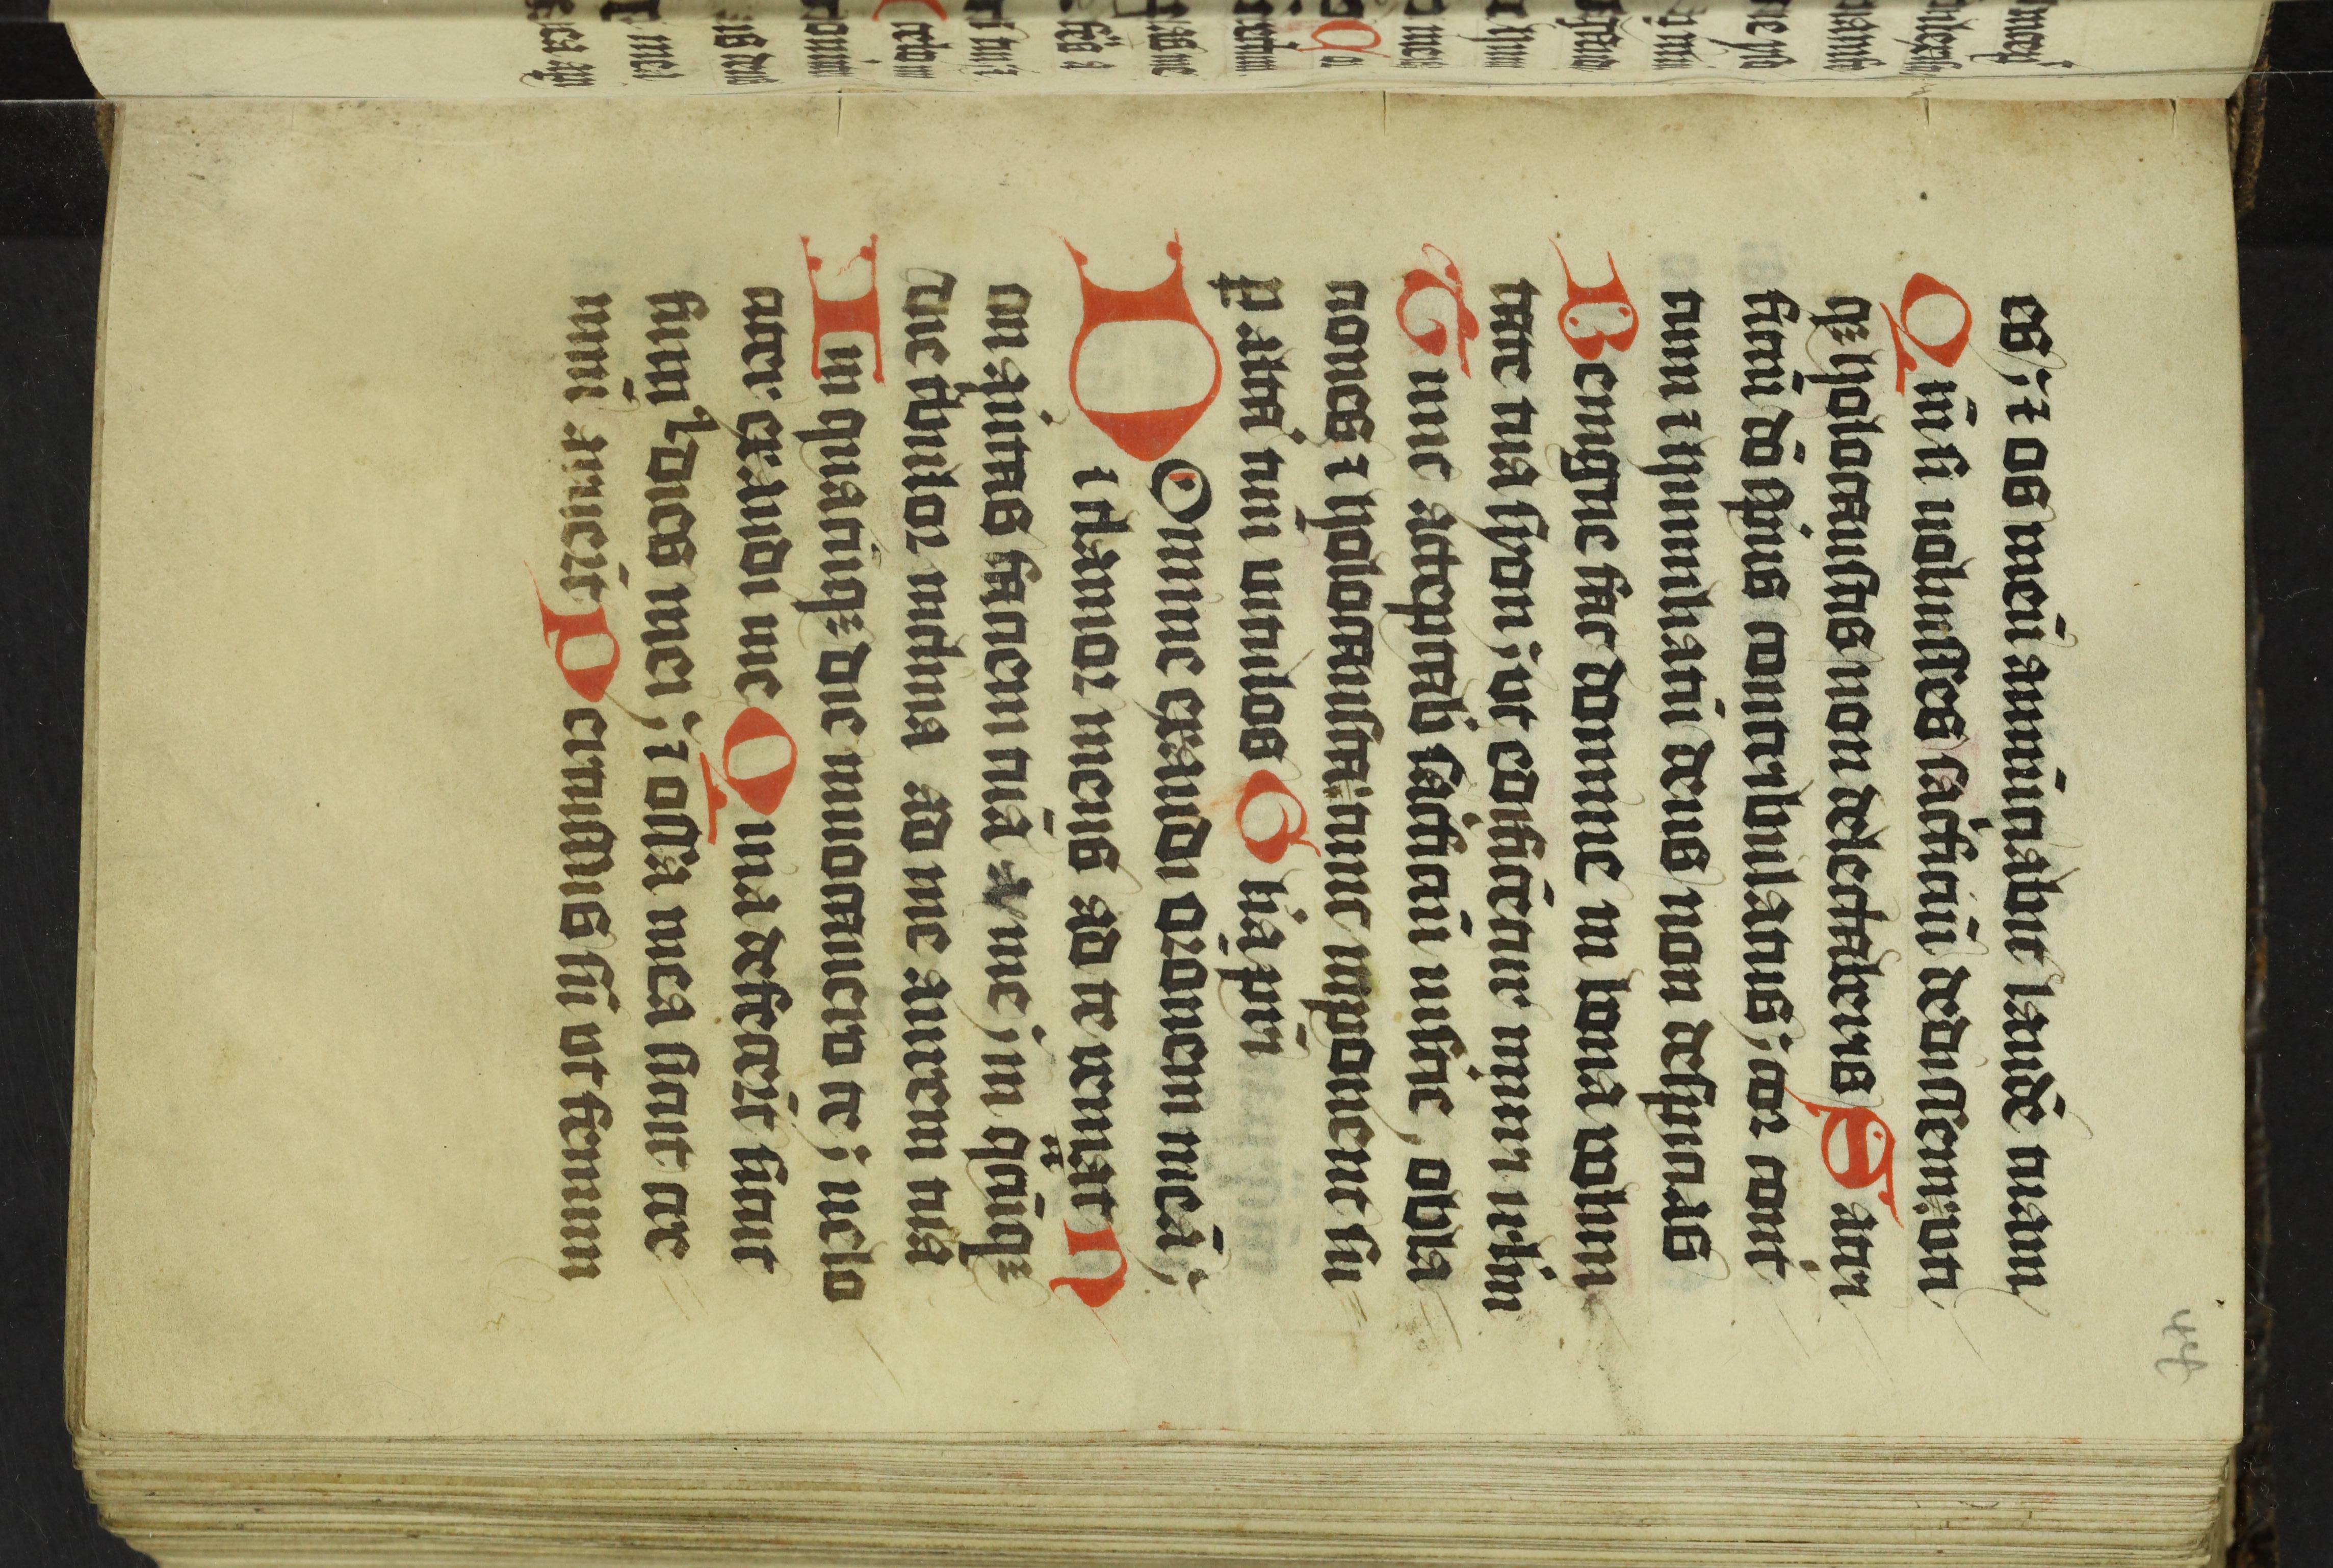 es; ⁊ os meū annūciabit laudē tuam
Qm̄ si uoluisses sac̓ficiū dedissem vti
qꝫ holocaustis non delectaberis Sacri
ficiū dō sp̄us contribulatus; cor cont̓
tum ⁊ humiliatū deus non despicies
Benigne fac domine in bona volun
tate tua syon; vt edificēt̉ muri ierl̓m
Tunc acceptab̓ sac̓ficiū iusticie, obla
ciones ⁊ holocausta tunc inponent su
per altare tuū uitulos Gl̓ia pr̄i
Domine exaudi oracionem meā;
et clamor meus ad te ueniat N
on auertas faciem tuā a me; in qc̄ūqꝫ
die tribulor inclina ad me aurem tuā
In quacūqꝫ die inuocauero te; uelo
citer exaudi me Quia defecerūt sicut
fumꝰ dies mei; ⁊ ossa mea sicut cre
miū aruerūt Percussus sū vt fenum
74